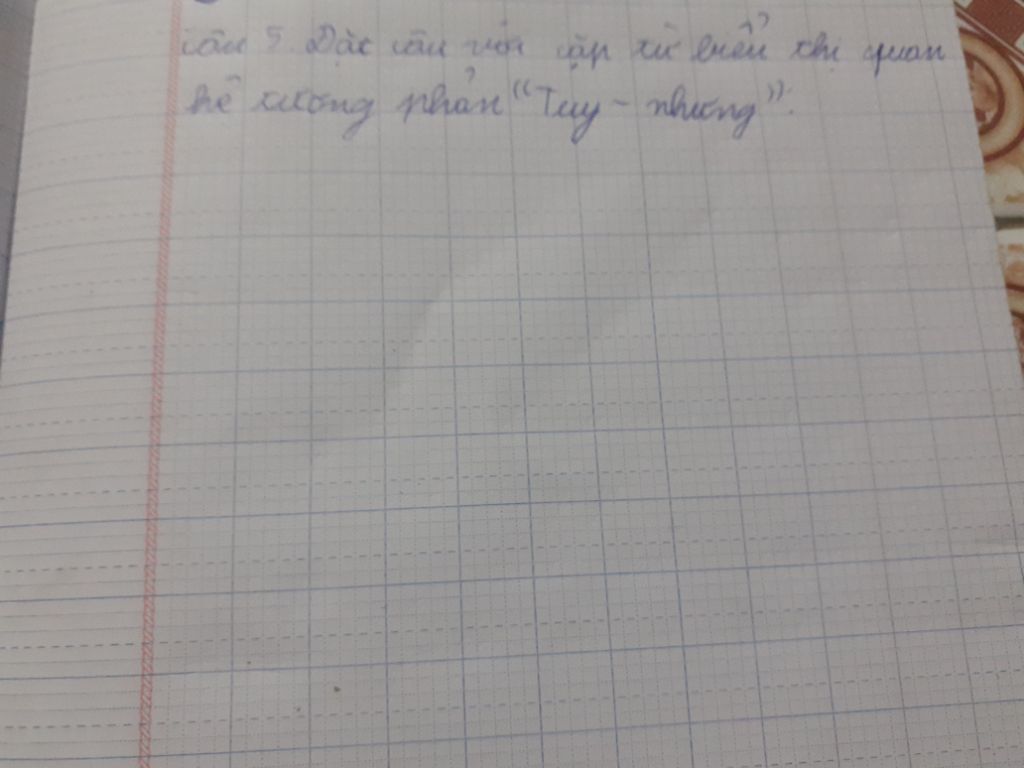 Câu 5. Đặt câu với cặp từ biểu thị quan
hệ tương phản "Tuy - nhưng".